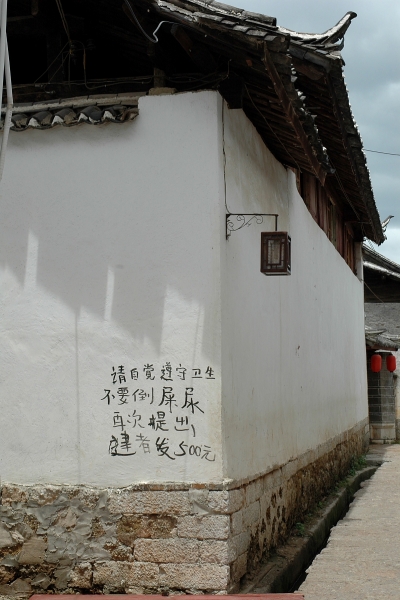 请自觉遵守卫生
不要倒屎尿
再次提出
建者发500元